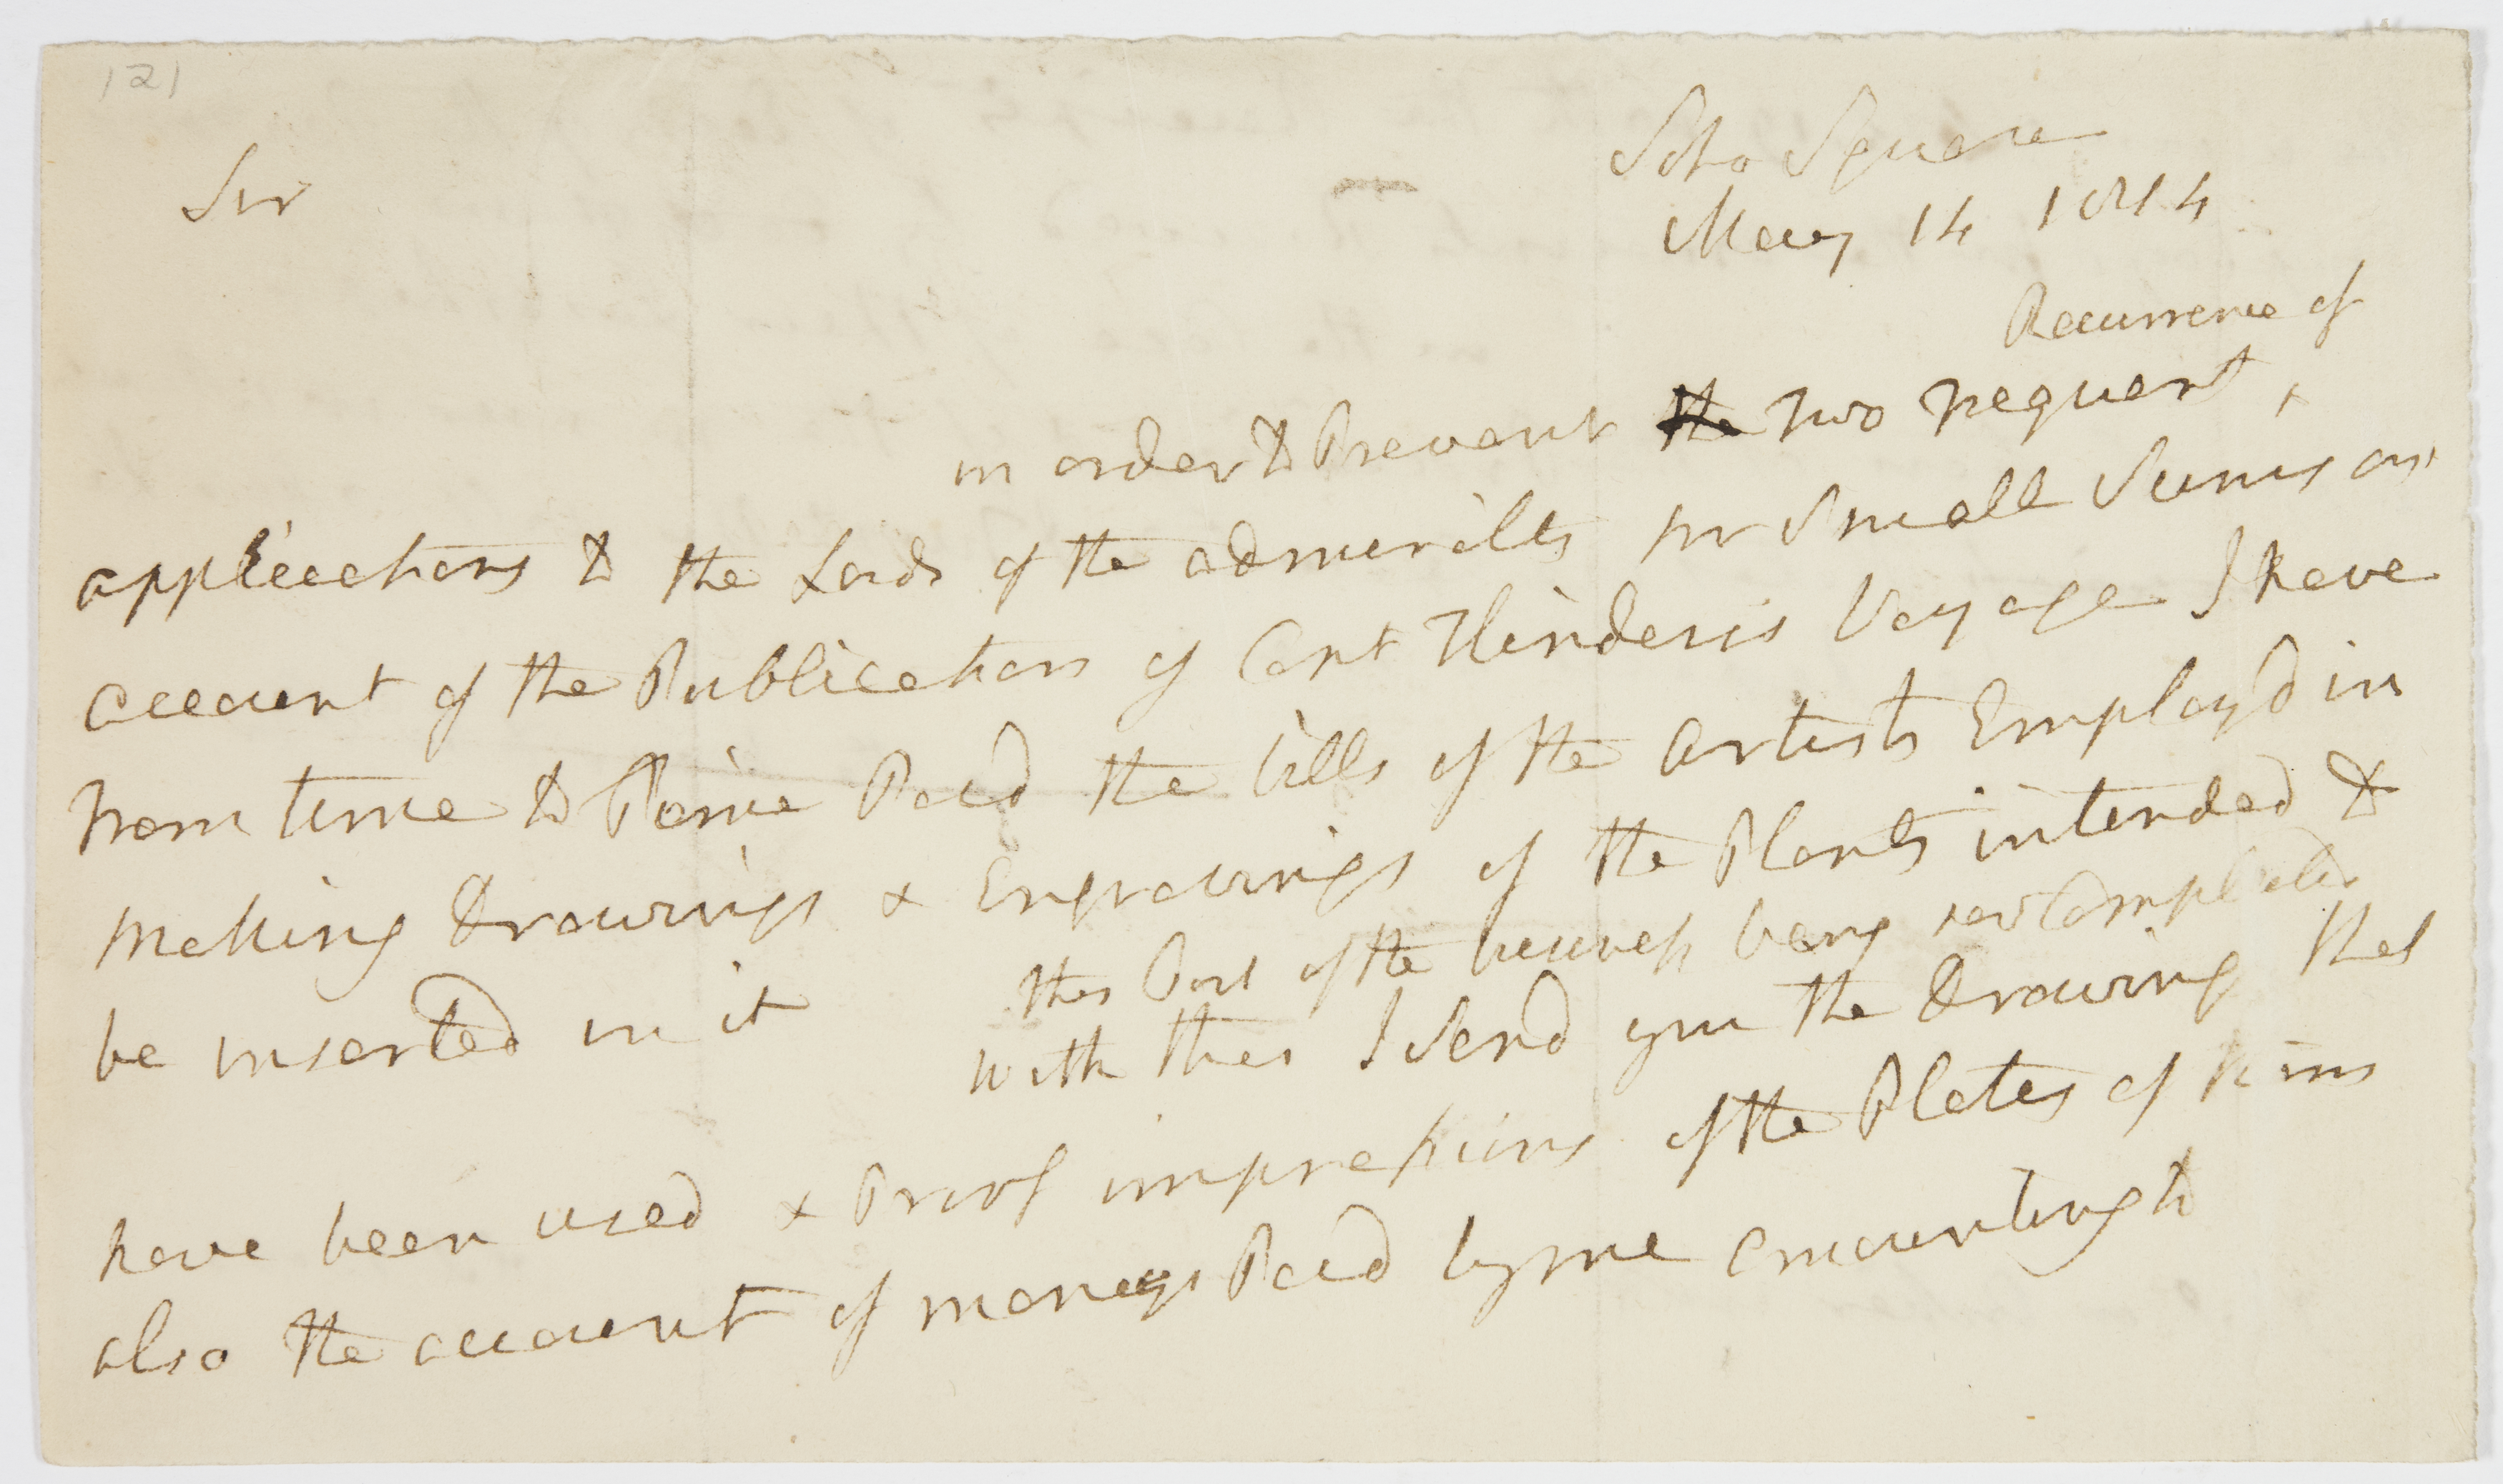 121
Soho Square
Sir
May 14 1814
Recurrence of
in order to Prevent the two frequent
applications to the Lords of the admiralty for Small Sums on
account of the Publication of Capt Flinders's Voyage I have
from time to Time Paid the bills of the artists Employd in
making Drawings & Engravings of the Plants intended to
be inserted in it
this Part of the business being now Compleated
with this I Send you the Drawing that
have been used & Proof impressions of the Plates of
also the account of moneys Paid by me amounting to